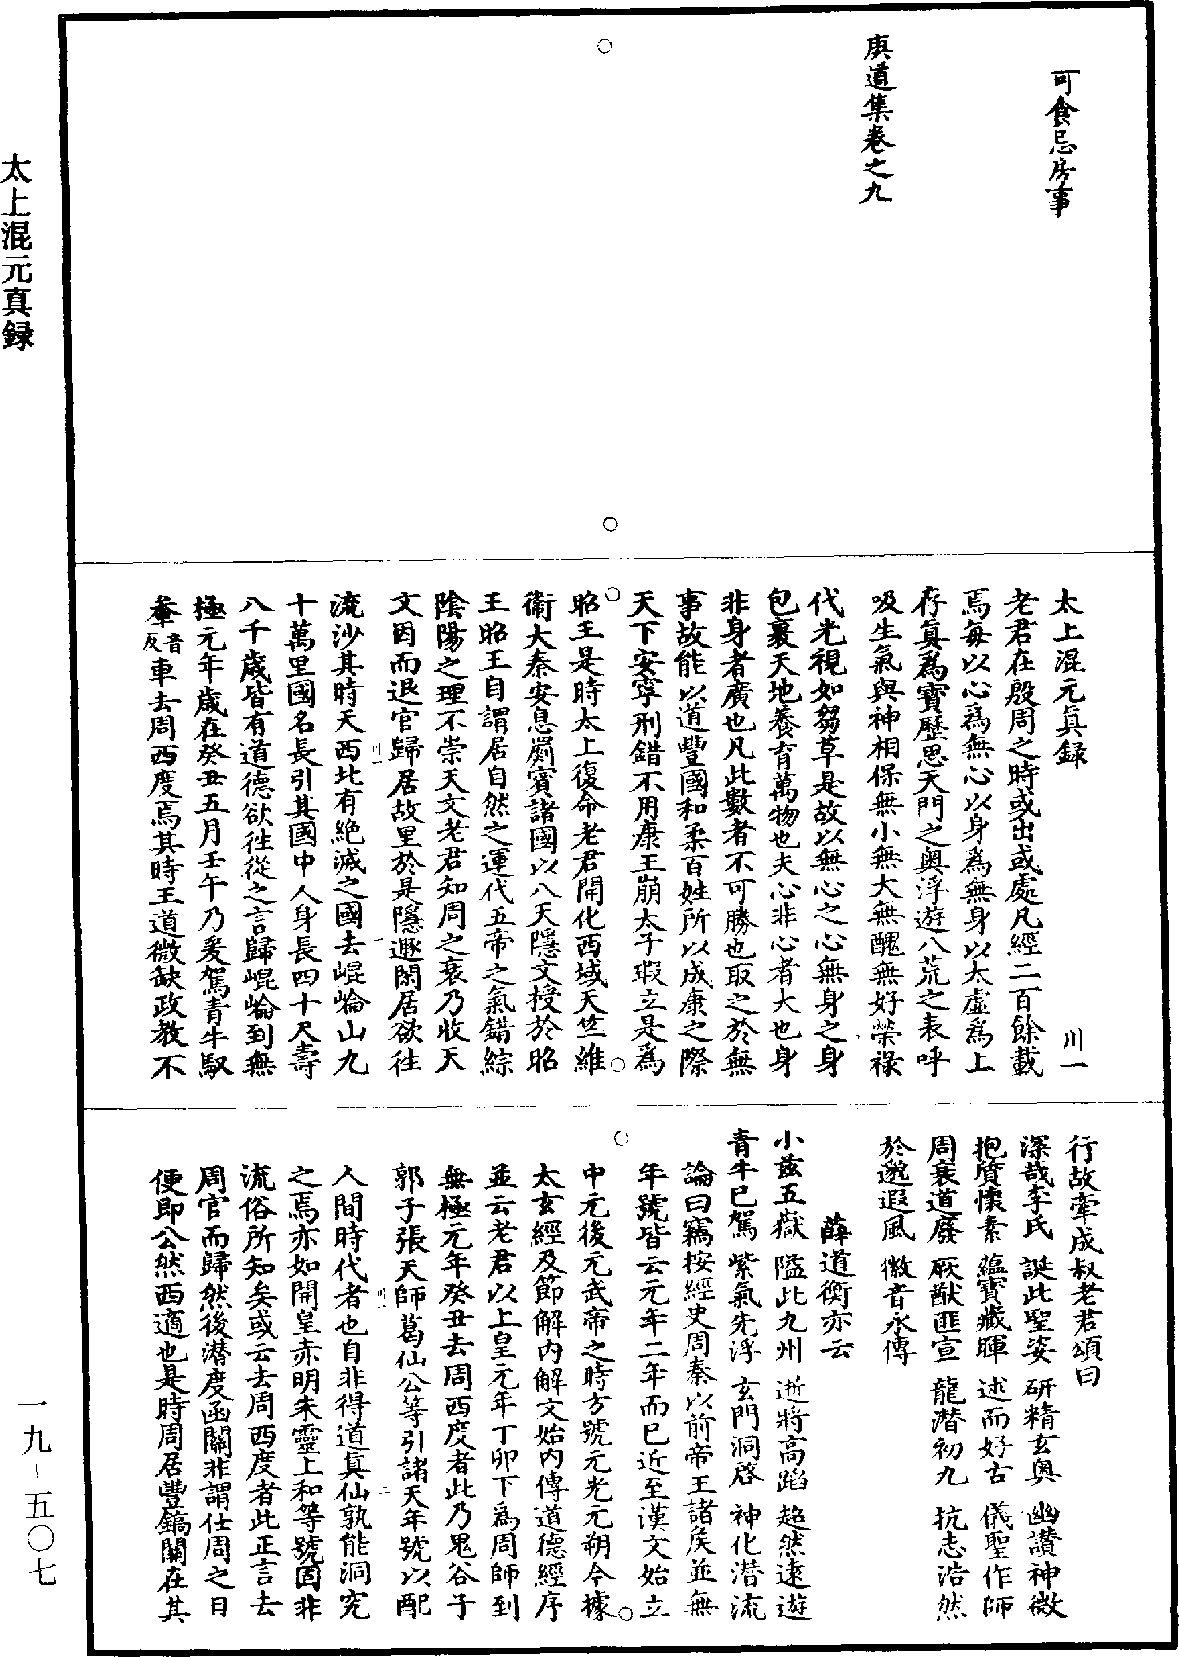 可食忌房事
庚道集卷之九
太上混元真録
太上混元真録 川一
老君在殷周之時或出或處凡經二百餘載
焉每以心爲無心以身爲無身以太虛爲上
存真爲寶歷思天門之奥浮遊八荒之表呼
吸生氣與神相保無小無大無醜無好榮祿
代光視如芻草是故以無心之心無身之身
包裹天地養育萬物也夫心非心者大也身
非身者廣也凡此數者不可勝也取之於無
事故能以道豐國和柔百姓所以成康之際
天下安寧刑錯不用康王崩太子瑕立是爲
昭王是時太上復命老君開化西域天竺維
衛大秦安息罽賓諸國以八天隱文授於昭
王昭王自謂居自然之運代五帝之氣錯綜
陰陽之理不崇天文老君知周之衰乃收天
文因而退官歸居故里於是隱遯閑居欲往
流沙其時天西北有絶滅之國去崐崘山九
十萬里國名長引其國中人身長四十尺壽
八千歲皆有道德欲往從之言歸崐崘到無
極元年歲在癸丑五月壬午乃爰駕青牛馭
輂音反車去周西度焉其時王道微缺政教不
行故牽成叔老君頌曰
深哉李氏 誕此聖姿 研精玄奥 幽讃神微
抱質懷素 蘊寶藏暉 述而好古 儀聖作師
周衰道廢 厥猷匪宣 龍潛初九 抗志浩然
於邈遐風 徽音永傳
薛道衡亦云
小兹五嶽 隘此九州 逝將高蹈 超然遠遊
青牛已駕 紫氣先浮 玄門洞啓 神化潛流
論曰竊按經史周秦以前帝王諸侯並無
年號皆云元年二年而已近至漢文始立
中元後元武帝之時方號元光元朔今據
太玄經及節解内解文始内傳道德經序
並云老君以上皇元年丁卯下爲周師到
無極元年癸丑去周西度者此乃鬼谷子
郭子張天師葛仙公等引諸天年號以配
人間時代者也自非得道真仙孰能洞究
之焉亦如開皇赤明朱靈上和等號固非
流俗所知矣或云去周西度者此正言去
周官而歸然後潛度函關非謂仕周之日
便即公然西適也是時周居豐鎬關在其
一九-五〇七